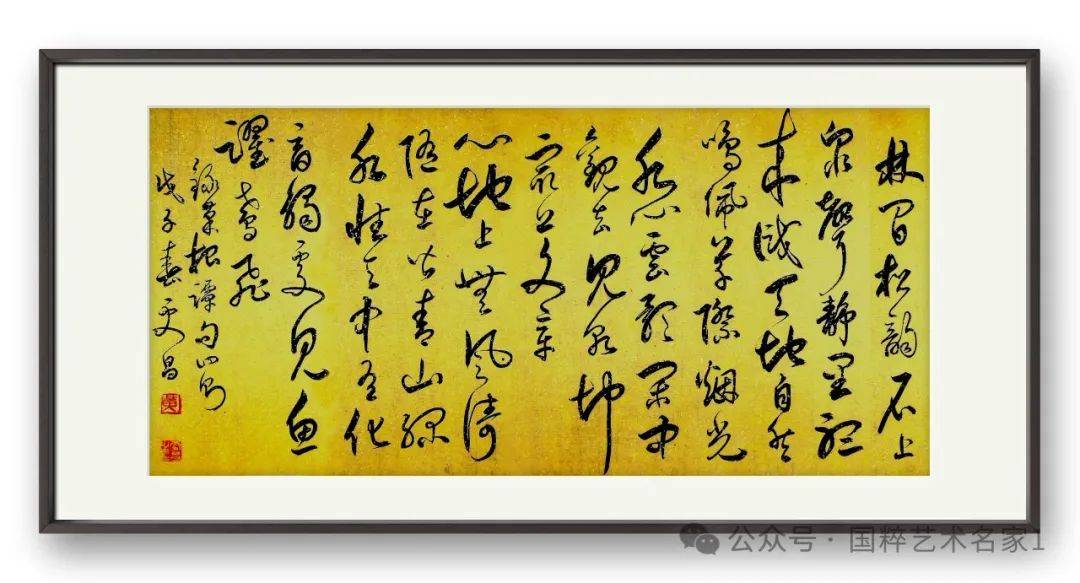 林間松韻石上
泉聲靜里聽
来識天地自然
鳴佩草際烟光
水心雲影閑中
觀去見乾坤
最上文章
心地上無風濤
随在皆青山緑
水性天中有化
育觸處見魚
躍鳶飛
錄菜根譚句
戊子春 昌
公众号·国粹艺术名家1